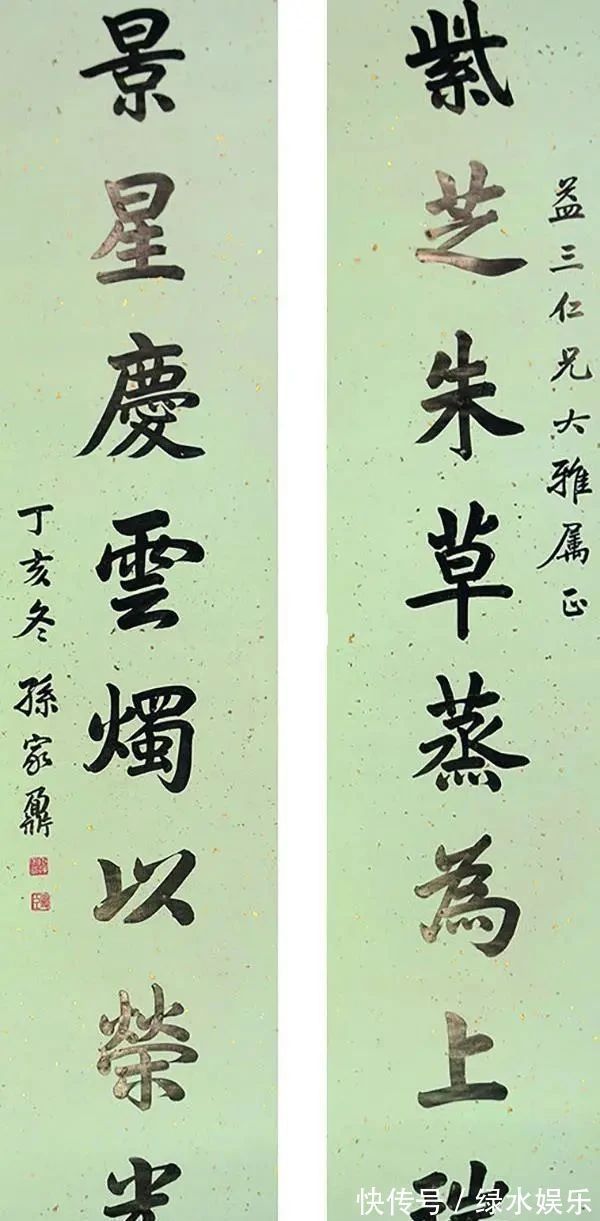 益三仁兄大雅属正
紫芝朱草蒸為上瑞
景星慶雲燭以榮光
丁亥冬孫家鼐
快传号/绿水娱乐